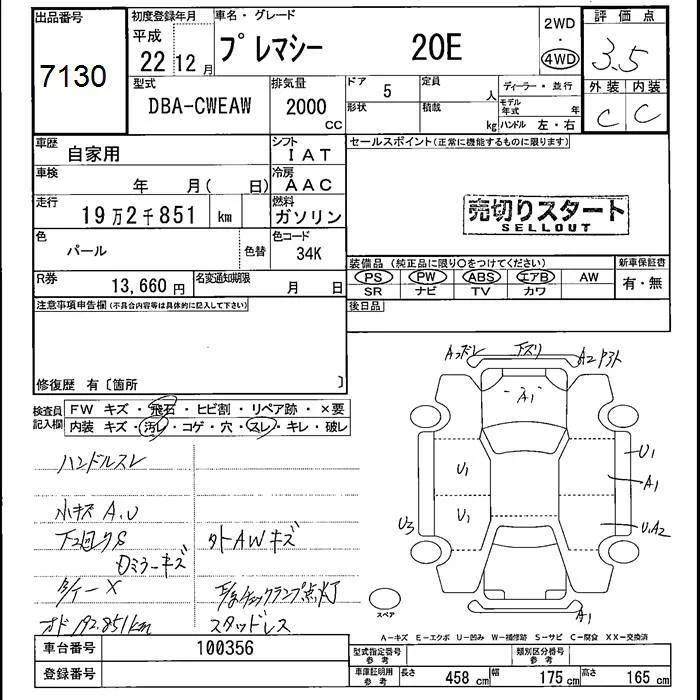 出品番号
7130
初度登録年月
平成
22 12月
車名・グレード
プレマシー 20E
2WD
・
4WD
評価点
3.5
外装 内装
C C
型式
DBA-CWEAW
排気量
2000
cc
ドア 5
形状
定員 人
積載 kg
ディーラー・並行
モデル年式 年
ハンドル 左・右
車歴
自家用
シフト
IAT
車検
年 月( 日)
冷房
AAC
走行
19万2千851 km
燃料
ガソリン
色
パール
色替
色コード
34K
R券
13,660円
名変通知期限
月 日
セールスポイント(正常に機能するものに限ります)
売切りスタート
SELLOUT
装備品(純正品に限り○をつけてください)
PS PW ABS エアB AW
SR ナビ TV カワ
新車保証書
有・無
後日品
注意事項申告欄(不具合内容等は具体的に記入して下さい)
修復歴 有〔箇所 〕
検査員
記入欄
FW キズ・飛石・ヒビ割・リペア跡・×要
内装 キズ・汚レ・コゲ・穴・スレ・キレ・破レ
ハンドルスレ
小キズ A.U
下回りS
Dミラーキズ
外AWキズ
オド 192.851km
スタッドレス
下ズリ
A1
U1
U1
U3
U1
A1
U1A2
A1
スペア
A-キズ E-エクボ U-凹み W-補修跡 S-サビ C-腐食 XX-交換済
車台番号
100356
登録番号
型式指定番号
参考
類別区分番号
参考
車庫証明用
参考
長さ 458 cm 幅 175 cm 高さ 165 cm